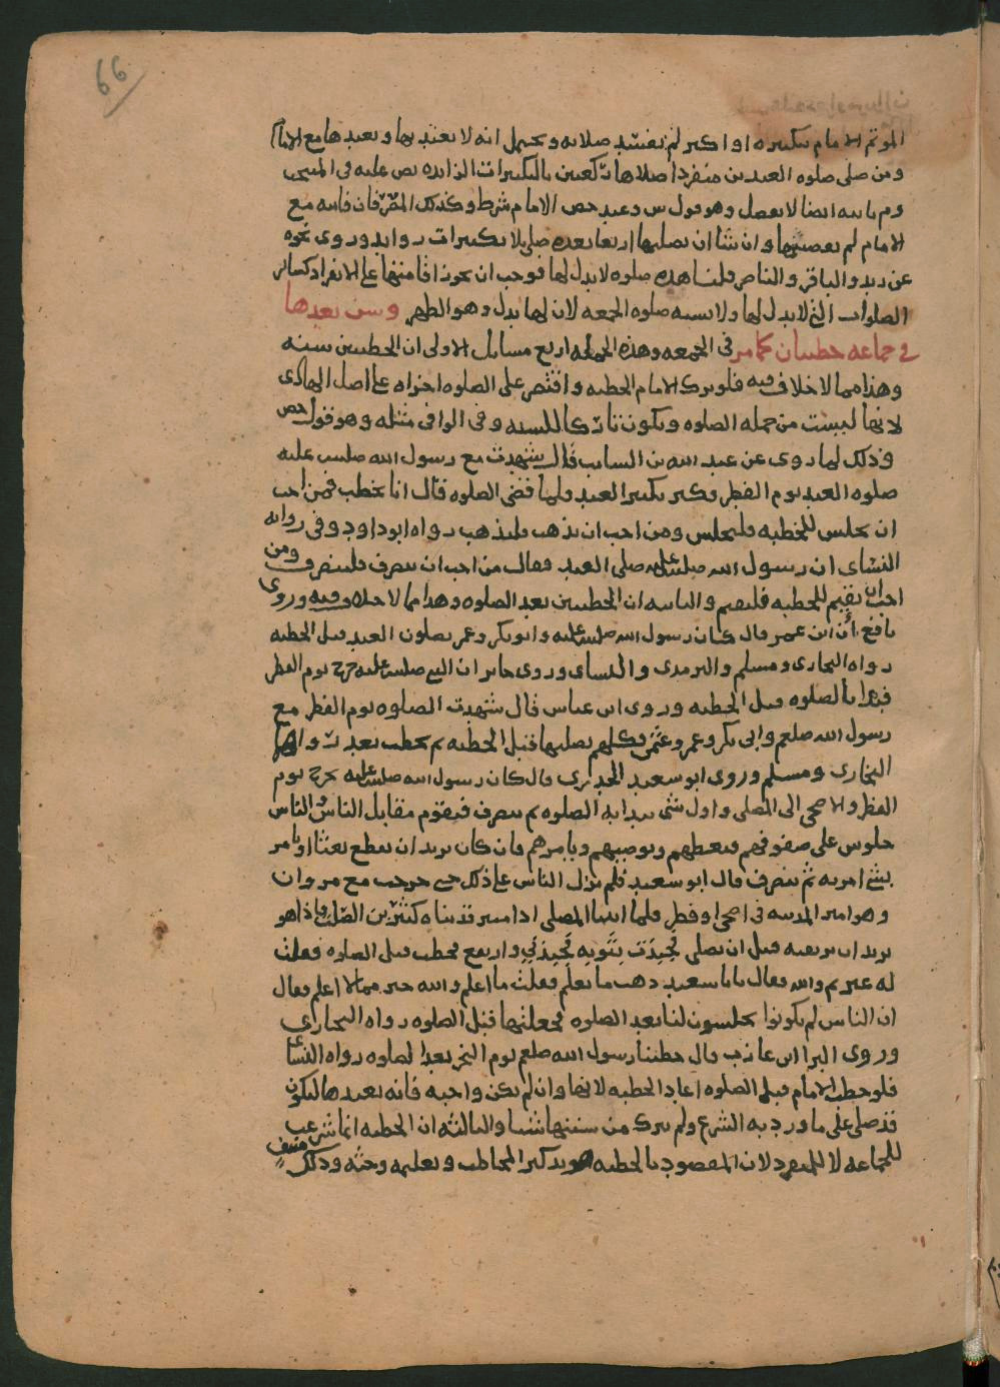 66
الموتم الامام بتكبيره او اكبر لم تفسد صلاته ويحتمل انه لا يعتد بها ويعيدها مع الامام
ومن صلى صلوه العيدين منفردا صلاها ركعتين بالتكبيرات الزايده نص عليه في المنتخب
وم بالله ايضا لا بفصل وهو قول س وعند حص الامام شرط وكذلك المصر فان فاته مع
الامام لم يقضها وان شا ان يصليها اربعا بعده صلى بلا تكبيرات زوايد وروى نحوه
عن زيد والباقر والناصر قلنا هذه صلوه لا بدل لها فوجب ان يجوز اقامتها على الانفراد كسائر
الصلوات التي لا بدل لها ولا يشبه صلوه الجمعه لان لها بدل وهو الظهر وسن بعدها
في جماعه خطبتان كما مر في الجمعه وهذه الجمله اربع مسايل الاولى ان الخطبتين سنه
وهذا مما لا خلاف فيه فلو ترك الامام الخطبه واقتصر على الصلوه اجزاه على اصل الهادى
لانها ليست من جمله الصلوه ويكون تاركا للسنه وفي الوافي مثله وهو قول حص
وذلك لما روى عن عبد الله بن السايب قال شهدت مع رسول الله صلى الله عليه
صلوه العيد يوم الفطر وكبر تكبير العيد فلما قضى الصلوه قال انا نخطب فمن احب
ان يجلس للخطبه فليجلس ومن احب ان يذهب فليذهب رواه ابو داود وفي روايه
النسائ ان رسول الله صلى الله عليه صلى العيد فقال من احب ان ينصرف فلينصرف ومن
احب ان يقيم للخطبه فليقم والثانيه ان الخطبتين بعد الصلوه وهذا مما لا خلاف فيه وروى
نافع أن ابن عمر قال كان رسول الله صلى الله عليه وابو بكر وعمر يصلون العيد قبل الخطبه
رواه البخارى ومسلم والترمذى والنساى وروى جابر ان النبي صلى الله عليه خرج يوم الفطر
فبدا بالصلوه قبل الخطبه وروى ابن عباس قال شهدت الصلوه يوم الفطر مع
رسول الله صلعم وابى بكر وعمر وعثمن فكلهم يصليها قبل الخطبه ثم يخطب بعد رواهما
البخارى ومسلم وروى ابو سعيد الخدري قال كان رسول الله صلى الله عليه يخرج يوم
الفطر والاضحى الى المصلى واول شى يبدا به الصلوه ثم ينصرف فيقوم مقابل الناس والناس
جلوس على صفوفهم فيعظهم ويوصيهم ويامرهم فان كان يريد ان يقطع بعثا او يامر
بشئ امر به ثم ينصرف قال ابو سعيد فلم يزل الناس على ذلك حتى خرجت مع مروان
وهو امير المدينه في اضحى او فطر فلما اتينا المصلى اذا منبر قد بناه كثير بن الصلت فاذا هو
يريد ان يرتقيه قبل ان يصلى فجبذت بثوبه فجبذني وارتفع فخطب قبل الصلوه فقلت
له غيرتم والله فقال يا با سعيد ذهب ما تعلم فقلت ما اعلم والله خير مما لا اعلم فقال
ان الناس لم يكونوا يجلسون لنا بعد الصلوه فجعلتها قبل الصلوه رواه البخاري
وروى البرا ابن عازب قال خطبنا رسول الله صلعم يوم النحر بعد الصلوه رواه النسائ
فلو خطب الامام قبل الصلوه اعاد الخطبه لانها وان لم تكن واجبه فانه يعيدها ليكون
قد صلى على ما ورد به الشرع ولم يترك من سننها شيا والثالثه ان الخطبه انما شرعت
للجماعه لا للمنفرد لان المقصود بالخطبه هو تذكير المخاطب وتعليمه وحثه وذلك
منتف